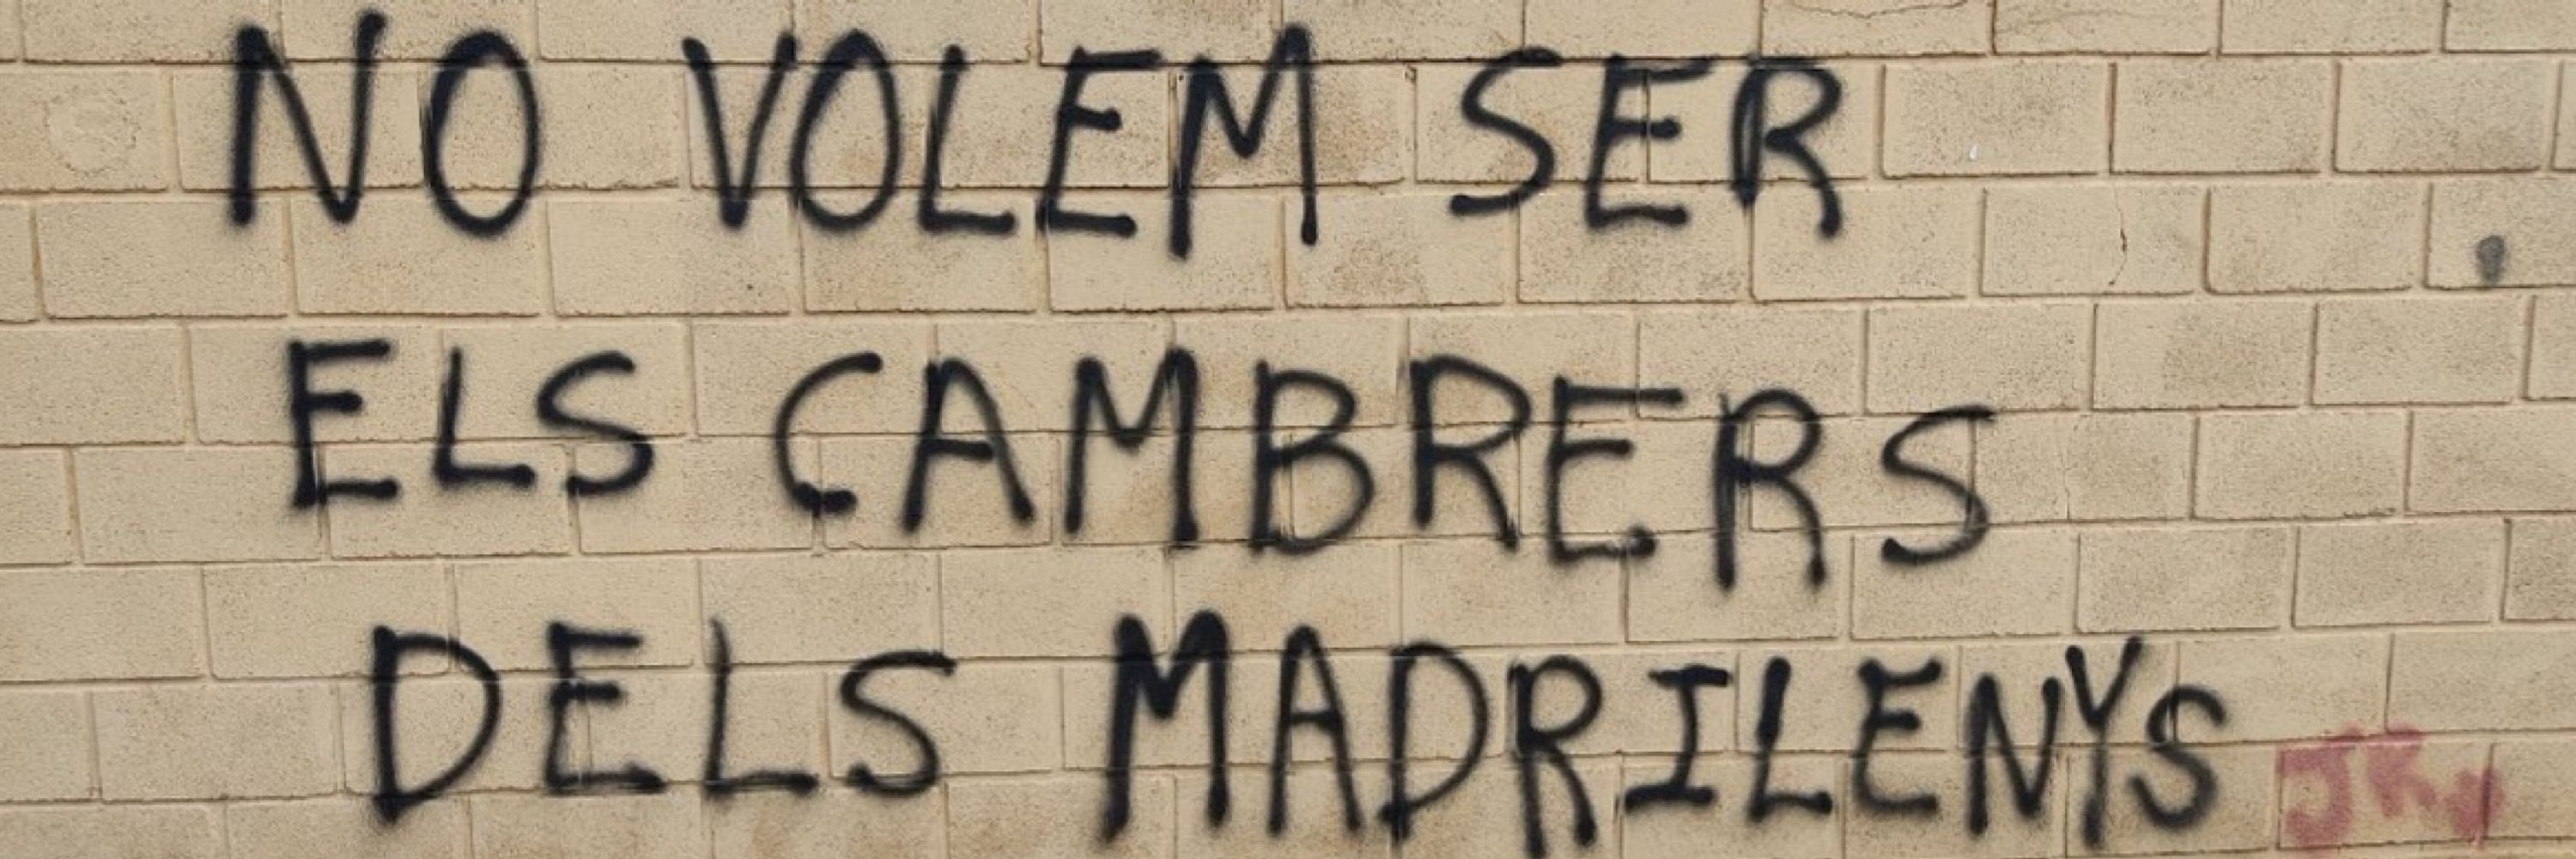 NO VOLEM SER
ELS CAMBRERS
DELS MADRILENYS